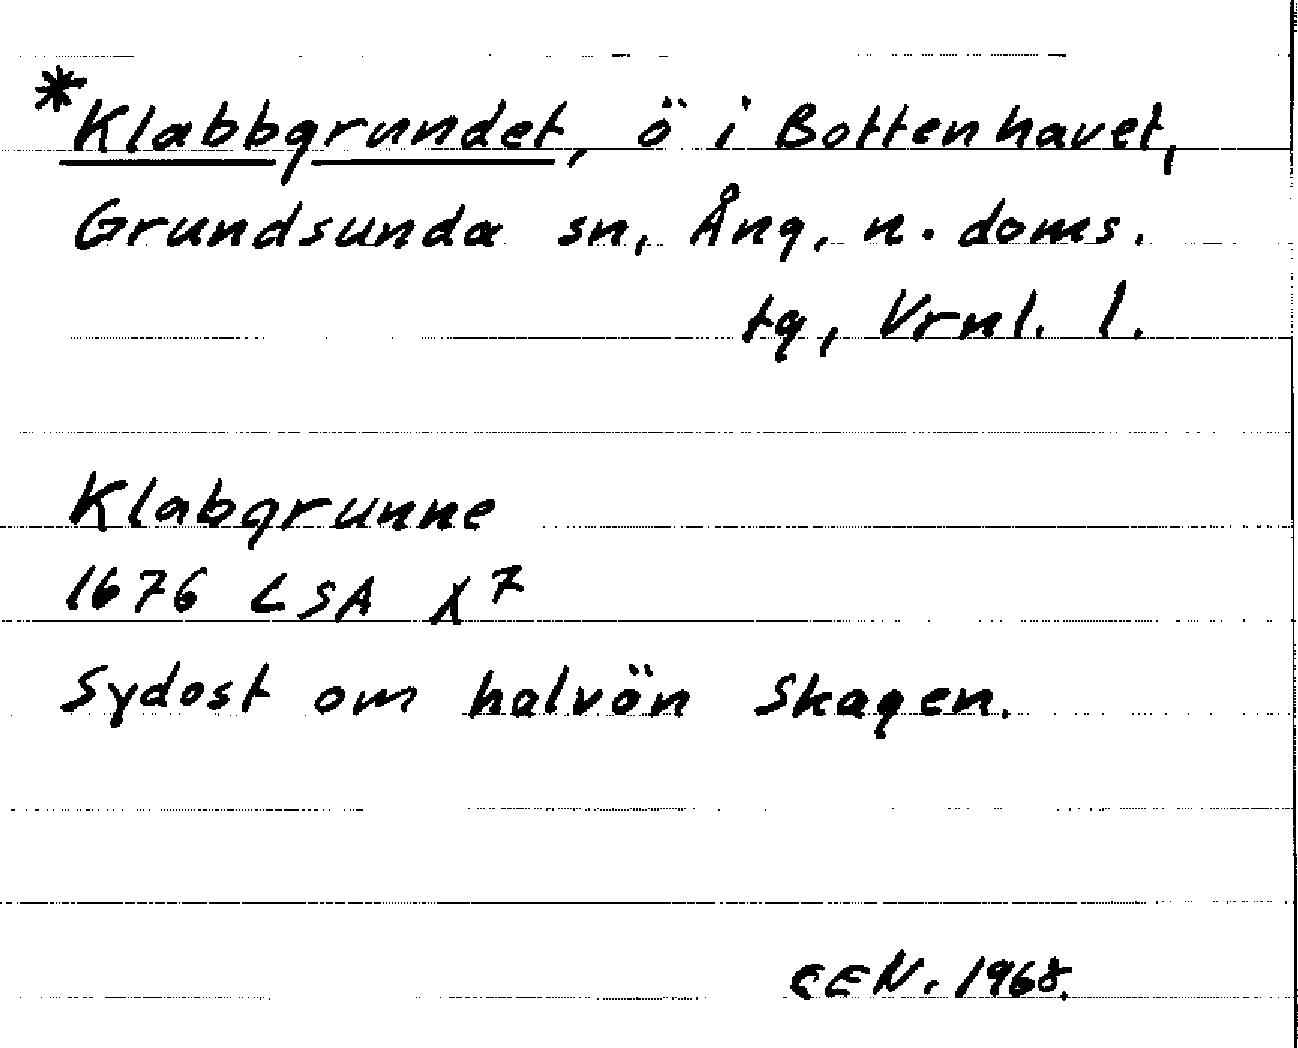 *Klabbgrundet, ö i Bottenhavet,
Grundsunda sn, Ång, n. doms.
tg, Vrnl. l.
Klabgrunne
1676 LSA X 7
Sydost om halvön Skagen.
CEN. 1968.